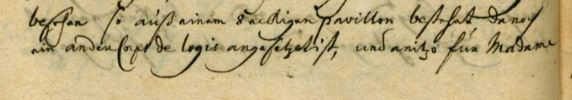 besehen so auß einem 8 eckigen pavillon bestehet, da noch
ein ander Corps de logis angesetzet ist, und anitzo für Madame